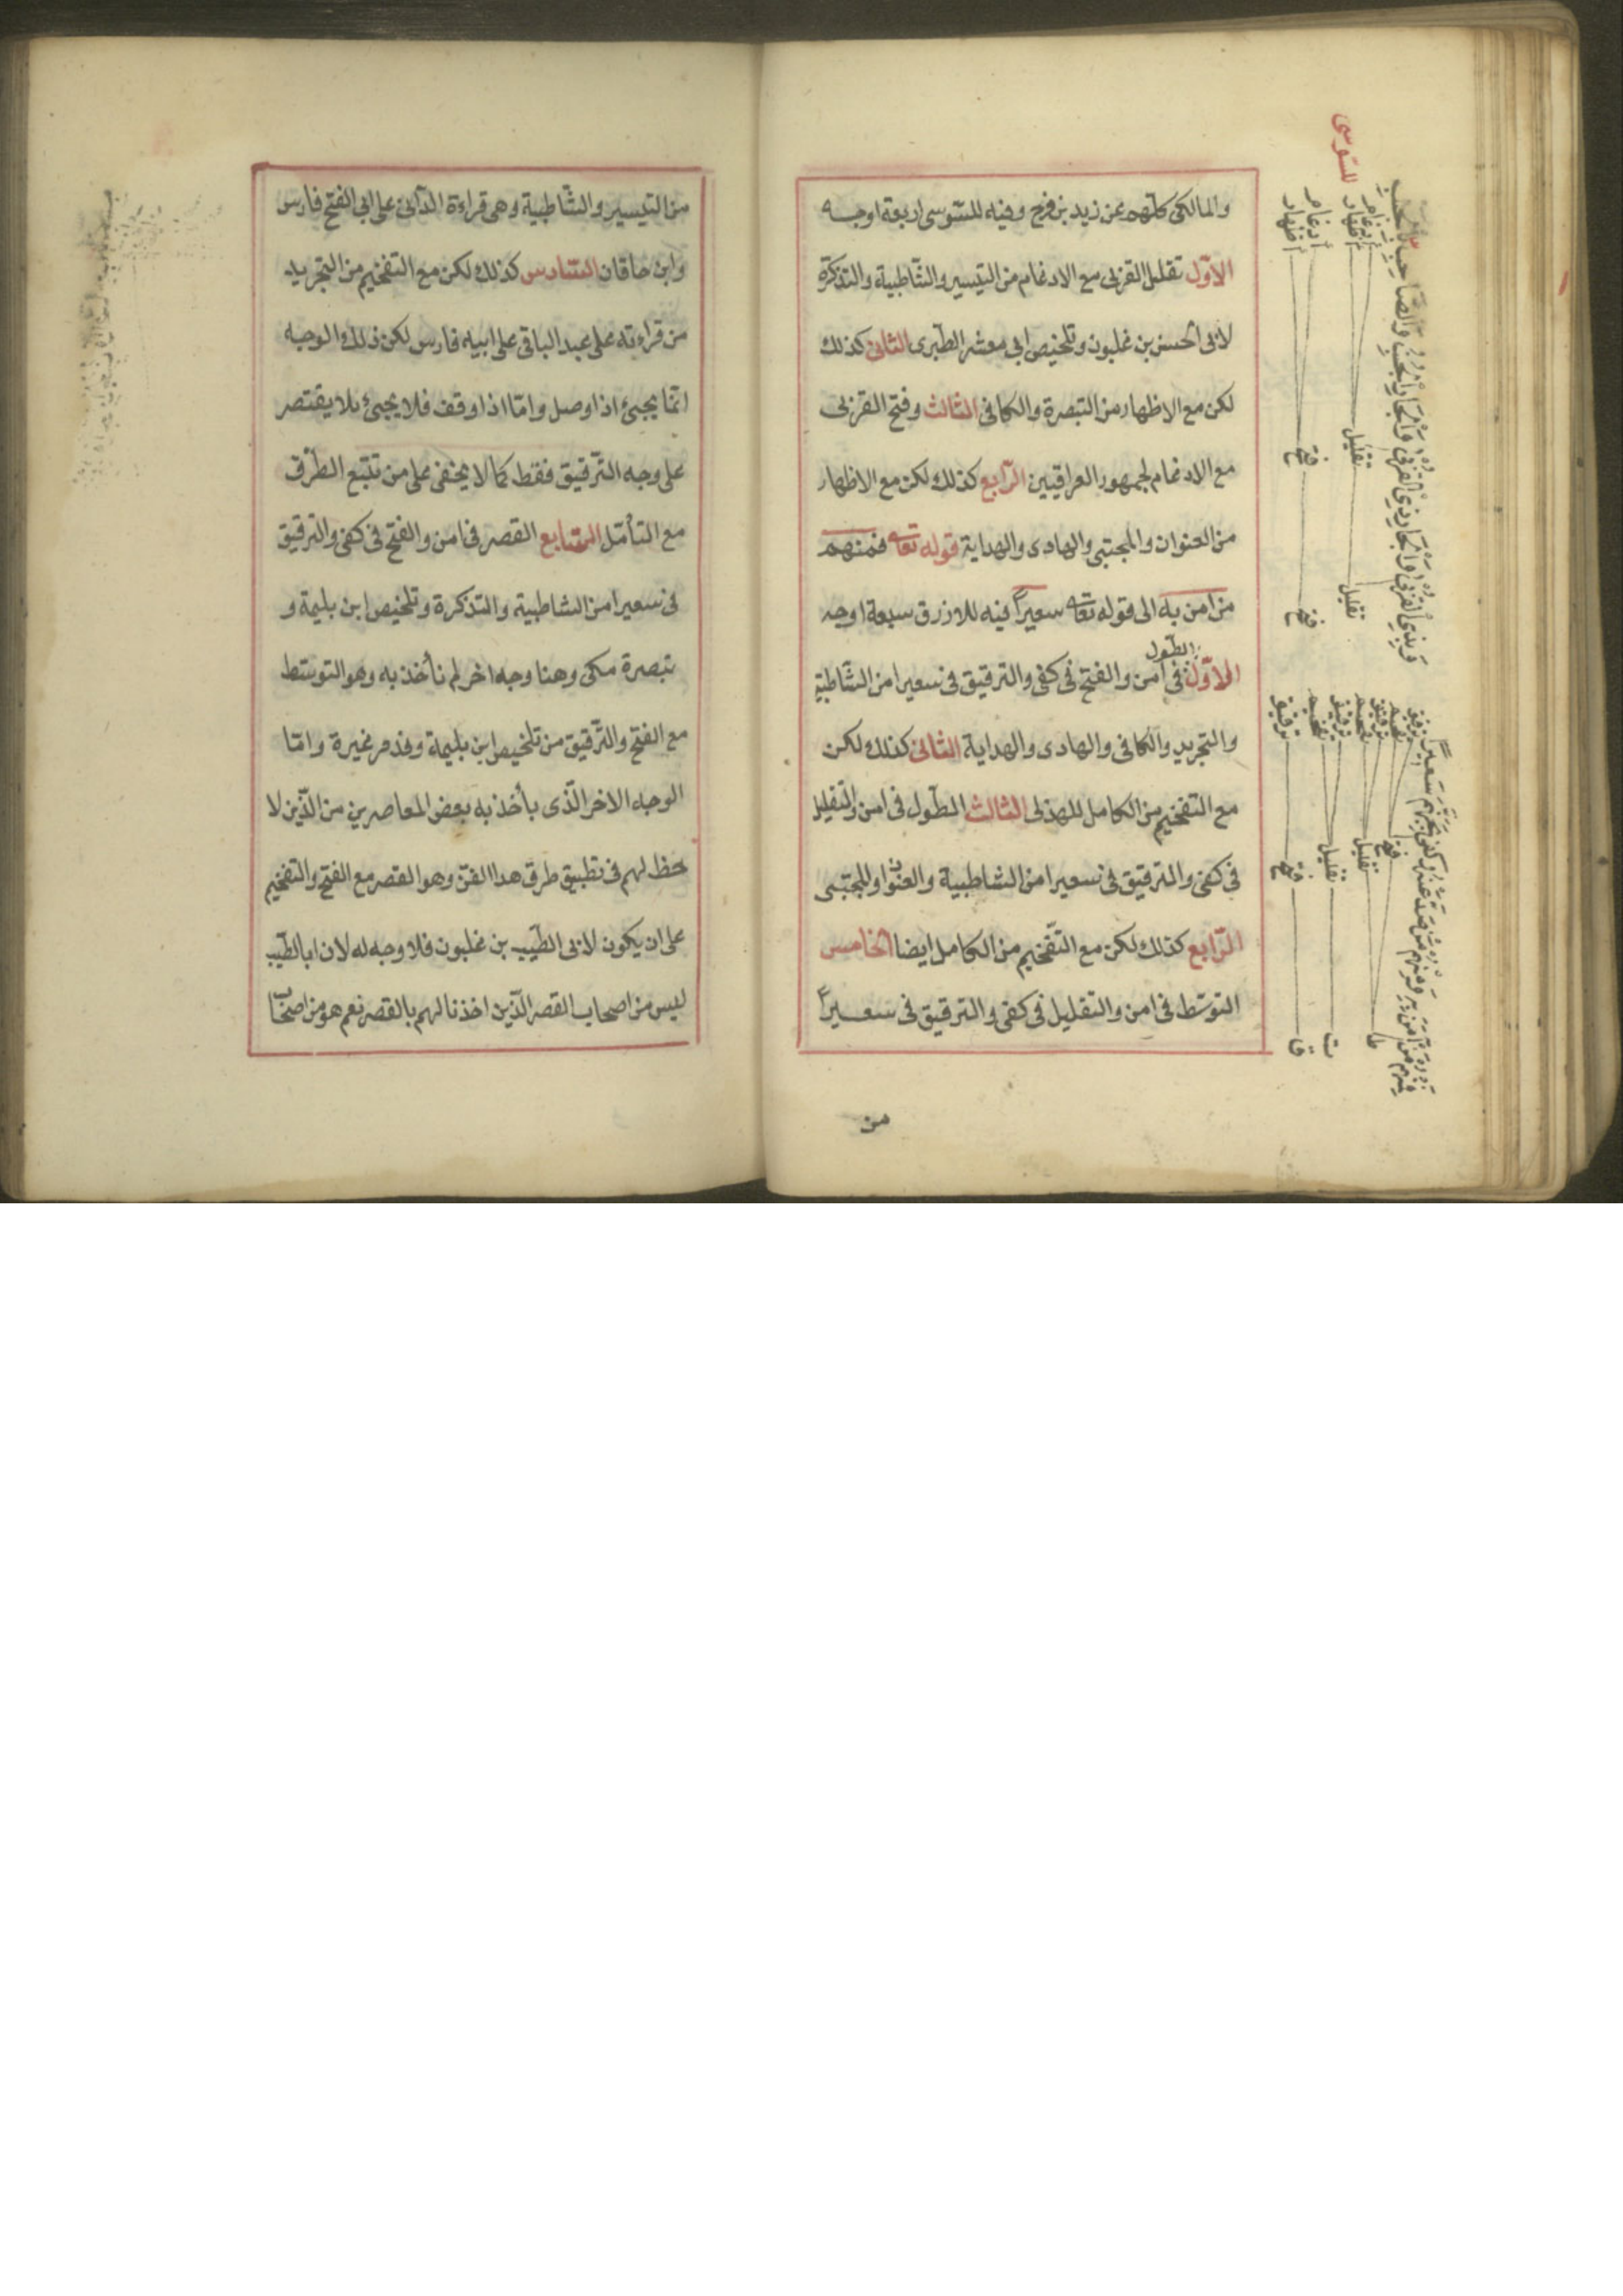 والمالكى كلهم عن زيد بن فرح وفيه للسّوسى اربعة اوجه
الاوّل تقليل القربى مع الادغام من التيسير والشّاطبية والتذكرة
لابى الحسن بن غلبون وتلخيص ابي معشر الطّبرى الثانى كذلك
لكن مع الاظهار من التبصرة والكافى الثالث وفتح القربى
مع الادغام لجمهور العراقيين الرّابع كذلك لكن مع الاظهار
من العنوان والمجتبى والهادى والهداية قوله تعا فمنهم
من امن به الى قوله تعا سعيرا فيه للازرق سبعة اوجه
الاوّل الطّول فى امن والفتح فى كفى والترقيق فى سعيرا من الشّاطبية
والتجريد والكافى والهادى والهداية الثانى كذلك لكن
مع التفخيم من الكامل للهذلى الثالث الطّول فى امن والتقليل
فى كفى والترقيق فى سعيرا من الشاطبية والعنوان والمجتبى
الرّابع كذلك لكن مع التفخيم من الكامل ايضا الخامس
التوسّط فى امن والتقليل فى كفى والترقيق فى سعيرا
من
للسّوسى
وبذى القربى
والجار ذى القربى والجار الجنب والصاحب بالجنب
ادغام
اظهار
ادغام
اظهار
تقليل
فتح
تقليل
فتح
فمنهم من امن به ومنهم من صد عنه وكفى بجهنم سعيرا
ترقيق
تفخيم
ترقيق
تفخيم
ترقيق
تفخيم
ترقيق
فتح
تقليل
تقليل
فتح
ط
ت
ق
من التيسير والشّاطبية وهى قراءة الدّانى على ابي الفتح فارس
وابن خاقان السّادس كذلك لكن مع التفخيم من التجريد
من قراءته على عبد الباقى على ابيه فارس لكن ذلك الوجه
انّما يجيئ اذا وصل وامّا اذا وقف فلا يجيئ بلا يقتصر
على وجه التّرقيق فقط كما لا يخفى على من تتبّع الطّرق
مع التأمّل السّابع القصر فى امن والفتح فى كفى والترقيق
فى سعيرا من الشاطبية والتذكرة وتلخيص ابن بليمة و
تبصرة مكى وهنا وجه اخر لم نأخذ به وهو التوسّط
مع الفتح والتّرقيق من تلخيص ابن بليمة وقد مر غيرة وامّا
الوجه الاخر الّذى يأخذ به بعض المعاصرين من الّذين لا
حظ لهم فى تطبيق طرق هذا الفنّ وهو القصر مع الفتح والتفخيم
على ان يكون لابى الطّيب بن غلبون فلا وجه له لان ابا الطّيب
ليس من اصحاب القصر الّذين اخذنا لهم بالقصر نعم هو من اصحاب